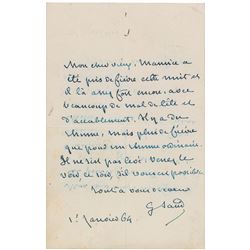 Mon cher vieux, Maurice a
été pris de fièvre cette nuit et
il l'a assez fort encore, avec
beaucoup de mal de tête et
d'accablement. Il y a du
rhume, mais plus de fièvre
que pour un rhume ordinaire.
Il ne s'est pas levé. Venez le
voir ce soir, s'il vous est possible
Tout à vous de cœur
G Sand
1er janvier 64